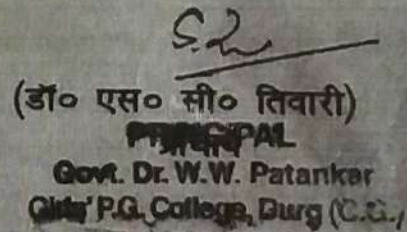 (डॉ० एस० सी० तिवारी)
PRINCIPAL
Govt. Dr. W.W. Patankar
Girls' P.G. College, Durg (C.G.)